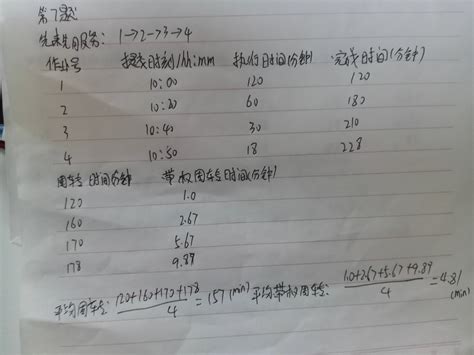 第7题
先来先服务: 1→2→3→4
作业号 提交时刻/hh:mm 执行时间(分钟) 完成时间(分钟)
1 10:00 120 120
2 10:20 60 180
3 10:40 30 210
4 10:50 18 228
周转时间(分钟) 带权周转时间(分钟)
120 1.0
160 2.67
170 5.67
178 9.89
平均周转: (120+160+170+178)/4 = 157 (min) 平均带权周转: (1.0+2.67+5.67+9.89)/4 = 4.81 (min)